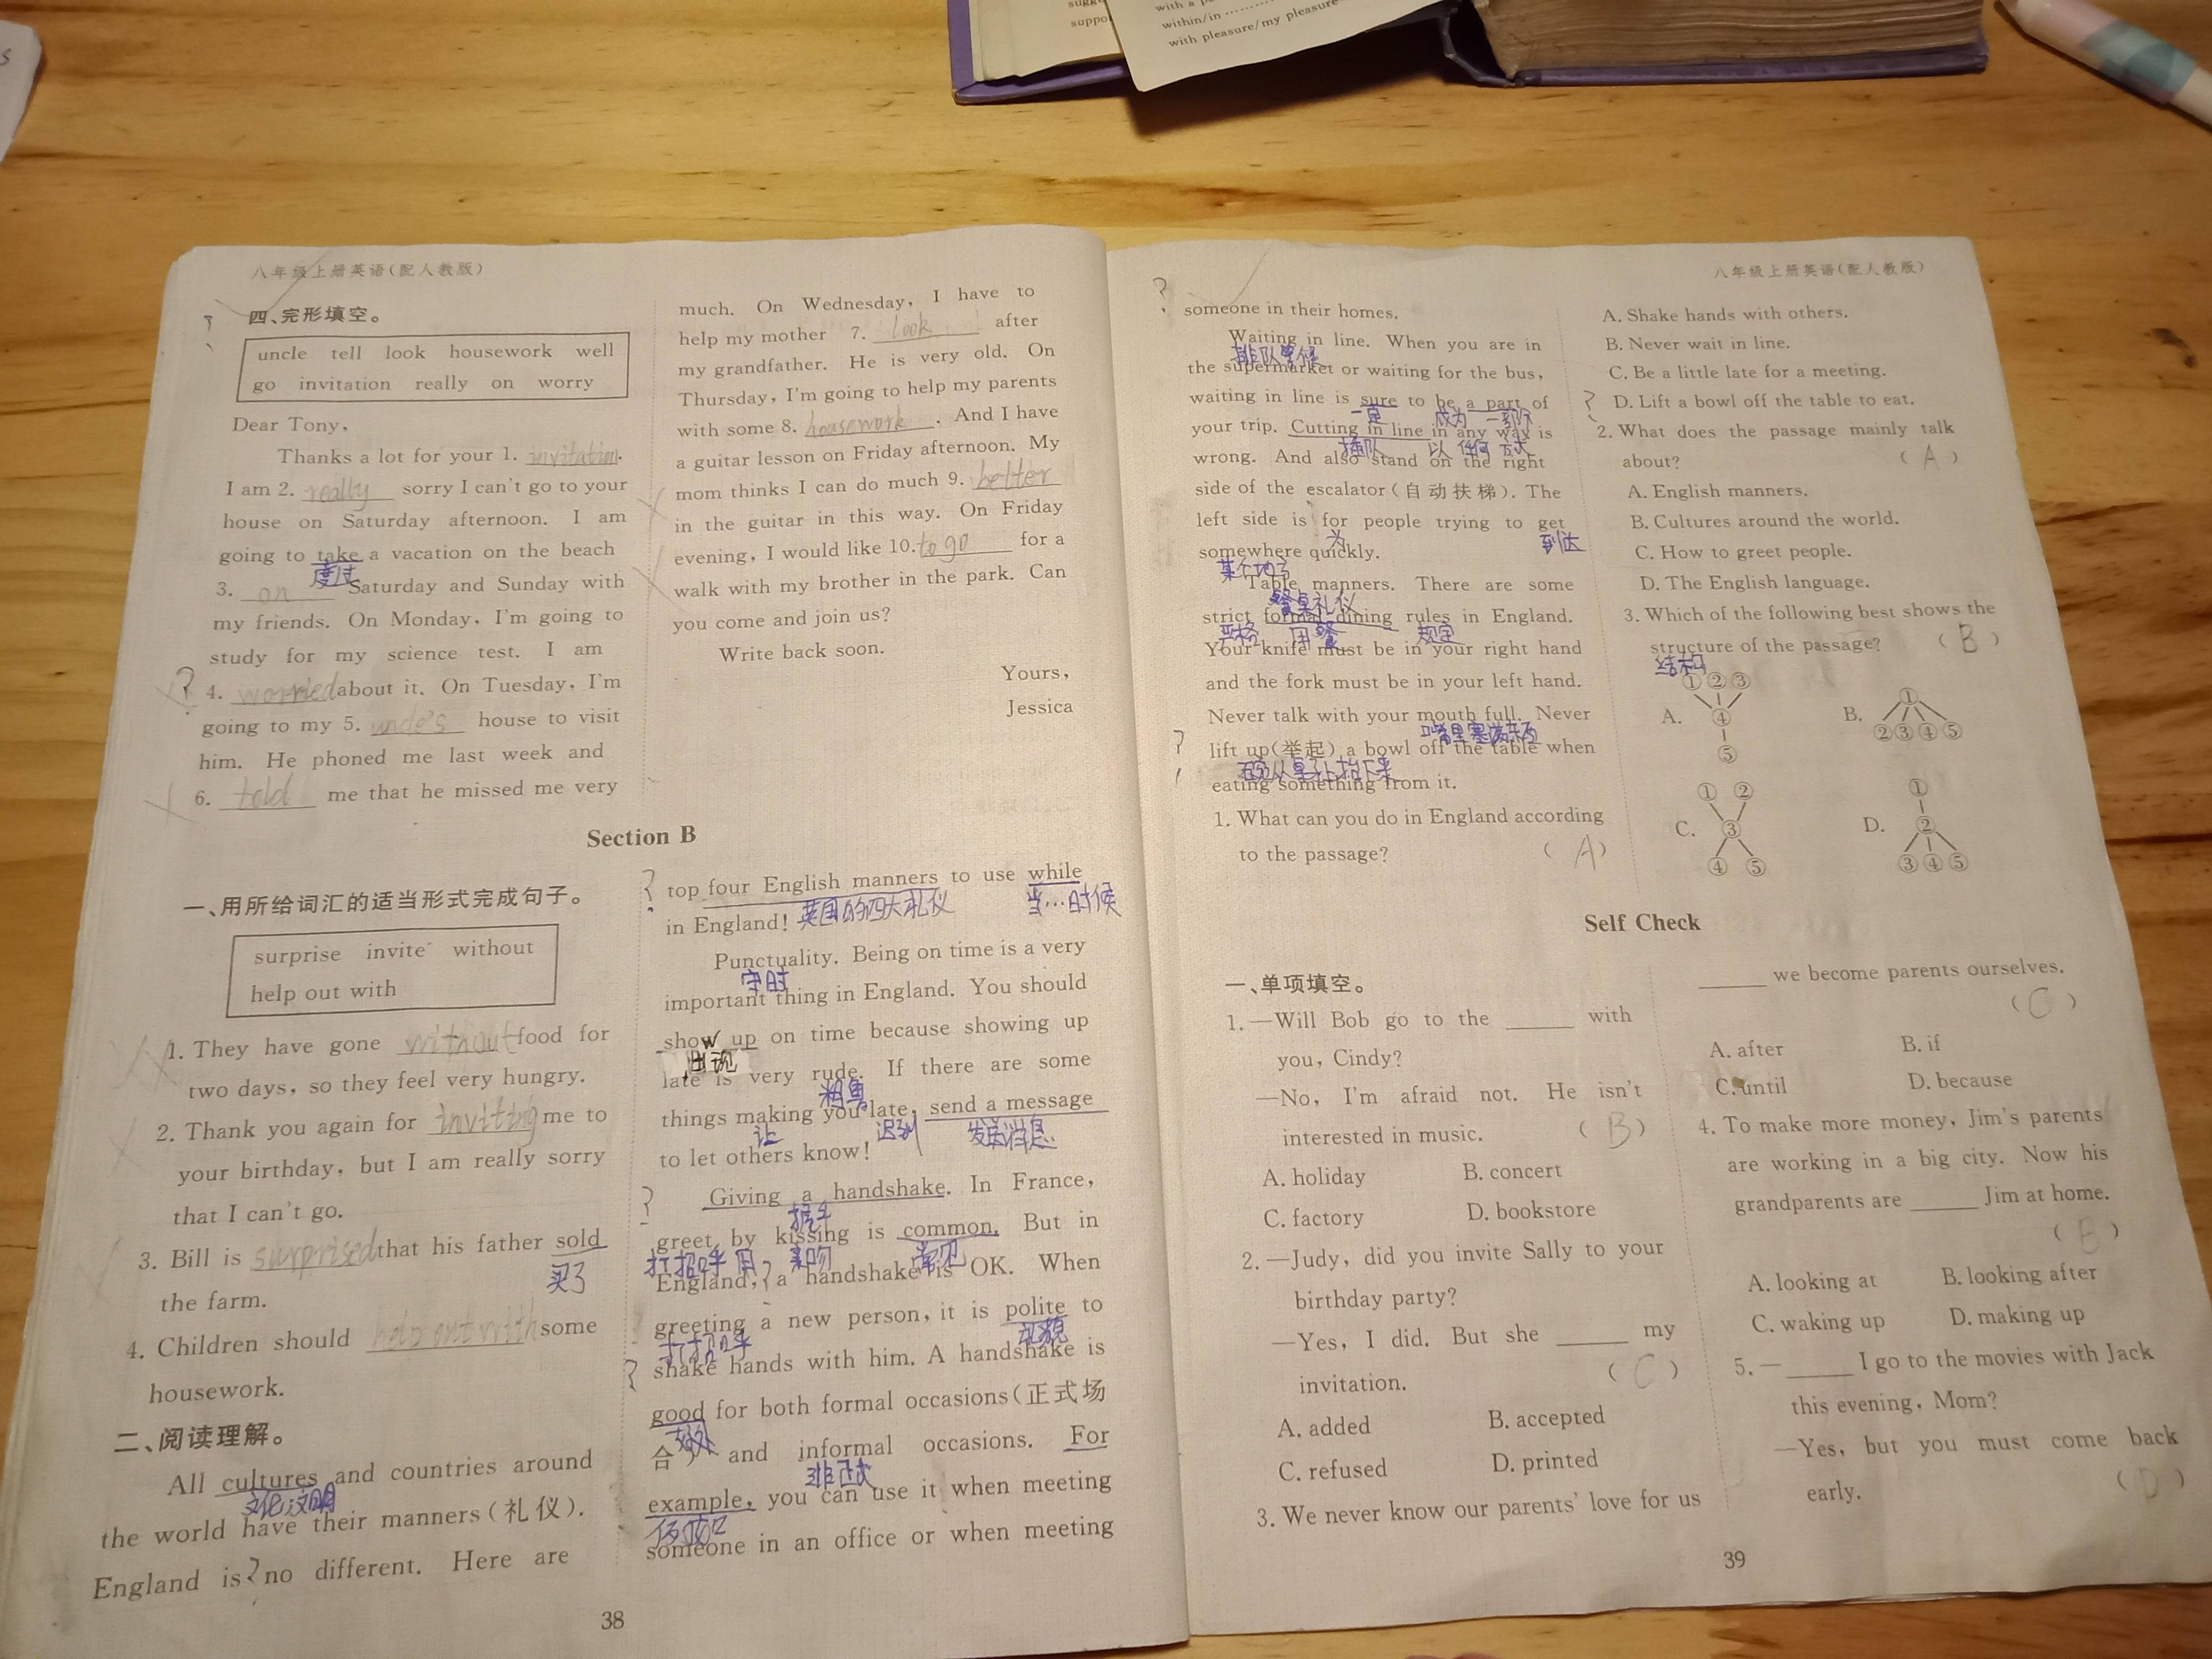 sugge
suppo
with a p
within/in ………
with pleasure/my pleasure
八年级上册英语(配人教版)
四、完形填空。
uncle tell look housework well
go invitation really on worry
Dear Tony,
Thanks a lot for your 1. invitation.
I am 2. really sorry I can't go to your
house on Saturday afternoon. I am
going to take a vacation on the beach
度过
3. on Saturday and Sunday with
my friends. On Monday, I'm going to
study for my science test. I am
? 4. worried about it. On Tuesday, I'm
going to my 5. uncle's house to visit
him. He phoned me last week and
6. told me that he missed me very
much. On Wednesday, I have to
help my mother 7. look after
my grandfather. He is very old. On
Thursday, I'm going to help my parents
with some 8. housework. And I have
a guitar lesson on Friday afternoon. My
mom thinks I can do much 9. better
in the guitar in this way. On Friday
evening, I would like 10. to go for a
walk with my brother in the park. Can
you come and join us?
Write back soon.
Yours,
Jessica
Section B
一、用所给词汇的适当形式完成句子。
surprise invite without
help out with
1. They have gone without food for
two days, so they feel very hungry.
2. Thank you again for inviting me to
your birthday, but I am really sorry
that I can't go.
3. Bill is surprised that his father sold
买了
the farm.
4. Children should help out with some
housework.
二、阅读理解。
All cultures and countries around
文化文明
the world have their manners(礼仪).
England is ? no different. Here are
38
? top four English manners to use while
英国的四大礼仪 当…时候
in England!
Punctuality. Being on time is a very
守时
important thing in England. You should
show up on time because showing up
出现
late is very rude. If there are some
粗鲁
things making you late, send a message
让 迟到 发送消息
to let others know!
? Giving a handshake. In France,
握手
greet by kissing is common. But in
打招呼 用 亲吻 常见
England, ? a handshake is OK. When
greeting a new person, it is polite to
打招呼 礼貌
? shake hands with him. A handshake is
good for both formal occasions(正式场
合) and informal occasions. For
非正式
example, you can use it when meeting
例如
someone in an office or when meeting
八年级上册英语(配人教版)
? someone in their homes.
Waiting in line. When you are in
排队等候
the supermarket or waiting for the bus,
waiting in line is sure to be a part of
一定 成为 一部分
your trip. Cutting in line in any way is
插队 以 任何 方式
wrong. And also stand on the right
side of the escalator(自动扶梯). The
left side is for people trying to get
为 到达
somewhere quickly.
某个地方
Table manners. There are some
餐桌礼仪
strict formal dining rules in England.
严格 用餐 规定
Your knife must be in your right hand
and the fork must be in your left hand.
Never talk with your mouth full. Never
嘴里塞满东西
? lift up(举起) a bowl off the table when
eating something from it.
1. What can you do in England according
to the passage? ( A )
A. Shake hands with others.
B. Never wait in line.
C. Be a little late for a meeting.
? D. Lift a bowl off the table to eat.
2. What does the passage mainly talk
about? ( A )
A. English manners.
B. Cultures around the world.
C. How to greet people.
D. The English language.
3. Which of the following best shows the
structure of the passage? ( B )
结构
A. ①②③
④
⑤
B. ①
②③④⑤
C. ① ②
③
④ ⑤
D. ①
②
③④⑤
Self Check
一、单项填空。
1. —Will Bob go to the ______ with
you, Cindy?
—No, I'm afraid not. He isn't
interested in music. ( B )
A. holiday B. concert
C. factory D. bookstore
2. —Judy, did you invite Sally to your
birthday party?
—Yes, I did. But she ______ my
invitation. ( C )
A. added B. accepted
C. refused D. printed
3. We never know our parents' love for us
______ we become parents ourselves.
( C )
A. after B. if
C. until D. because
4. To make more money, Jim's parents
are working in a big city. Now his
grandparents are ______ Jim at home.
( B )
A. looking at B. looking after
C. waking up D. making up
5. — ______ I go to the movies with Jack
this evening, Mom?
—Yes, but you must come back
early. ( D )
39